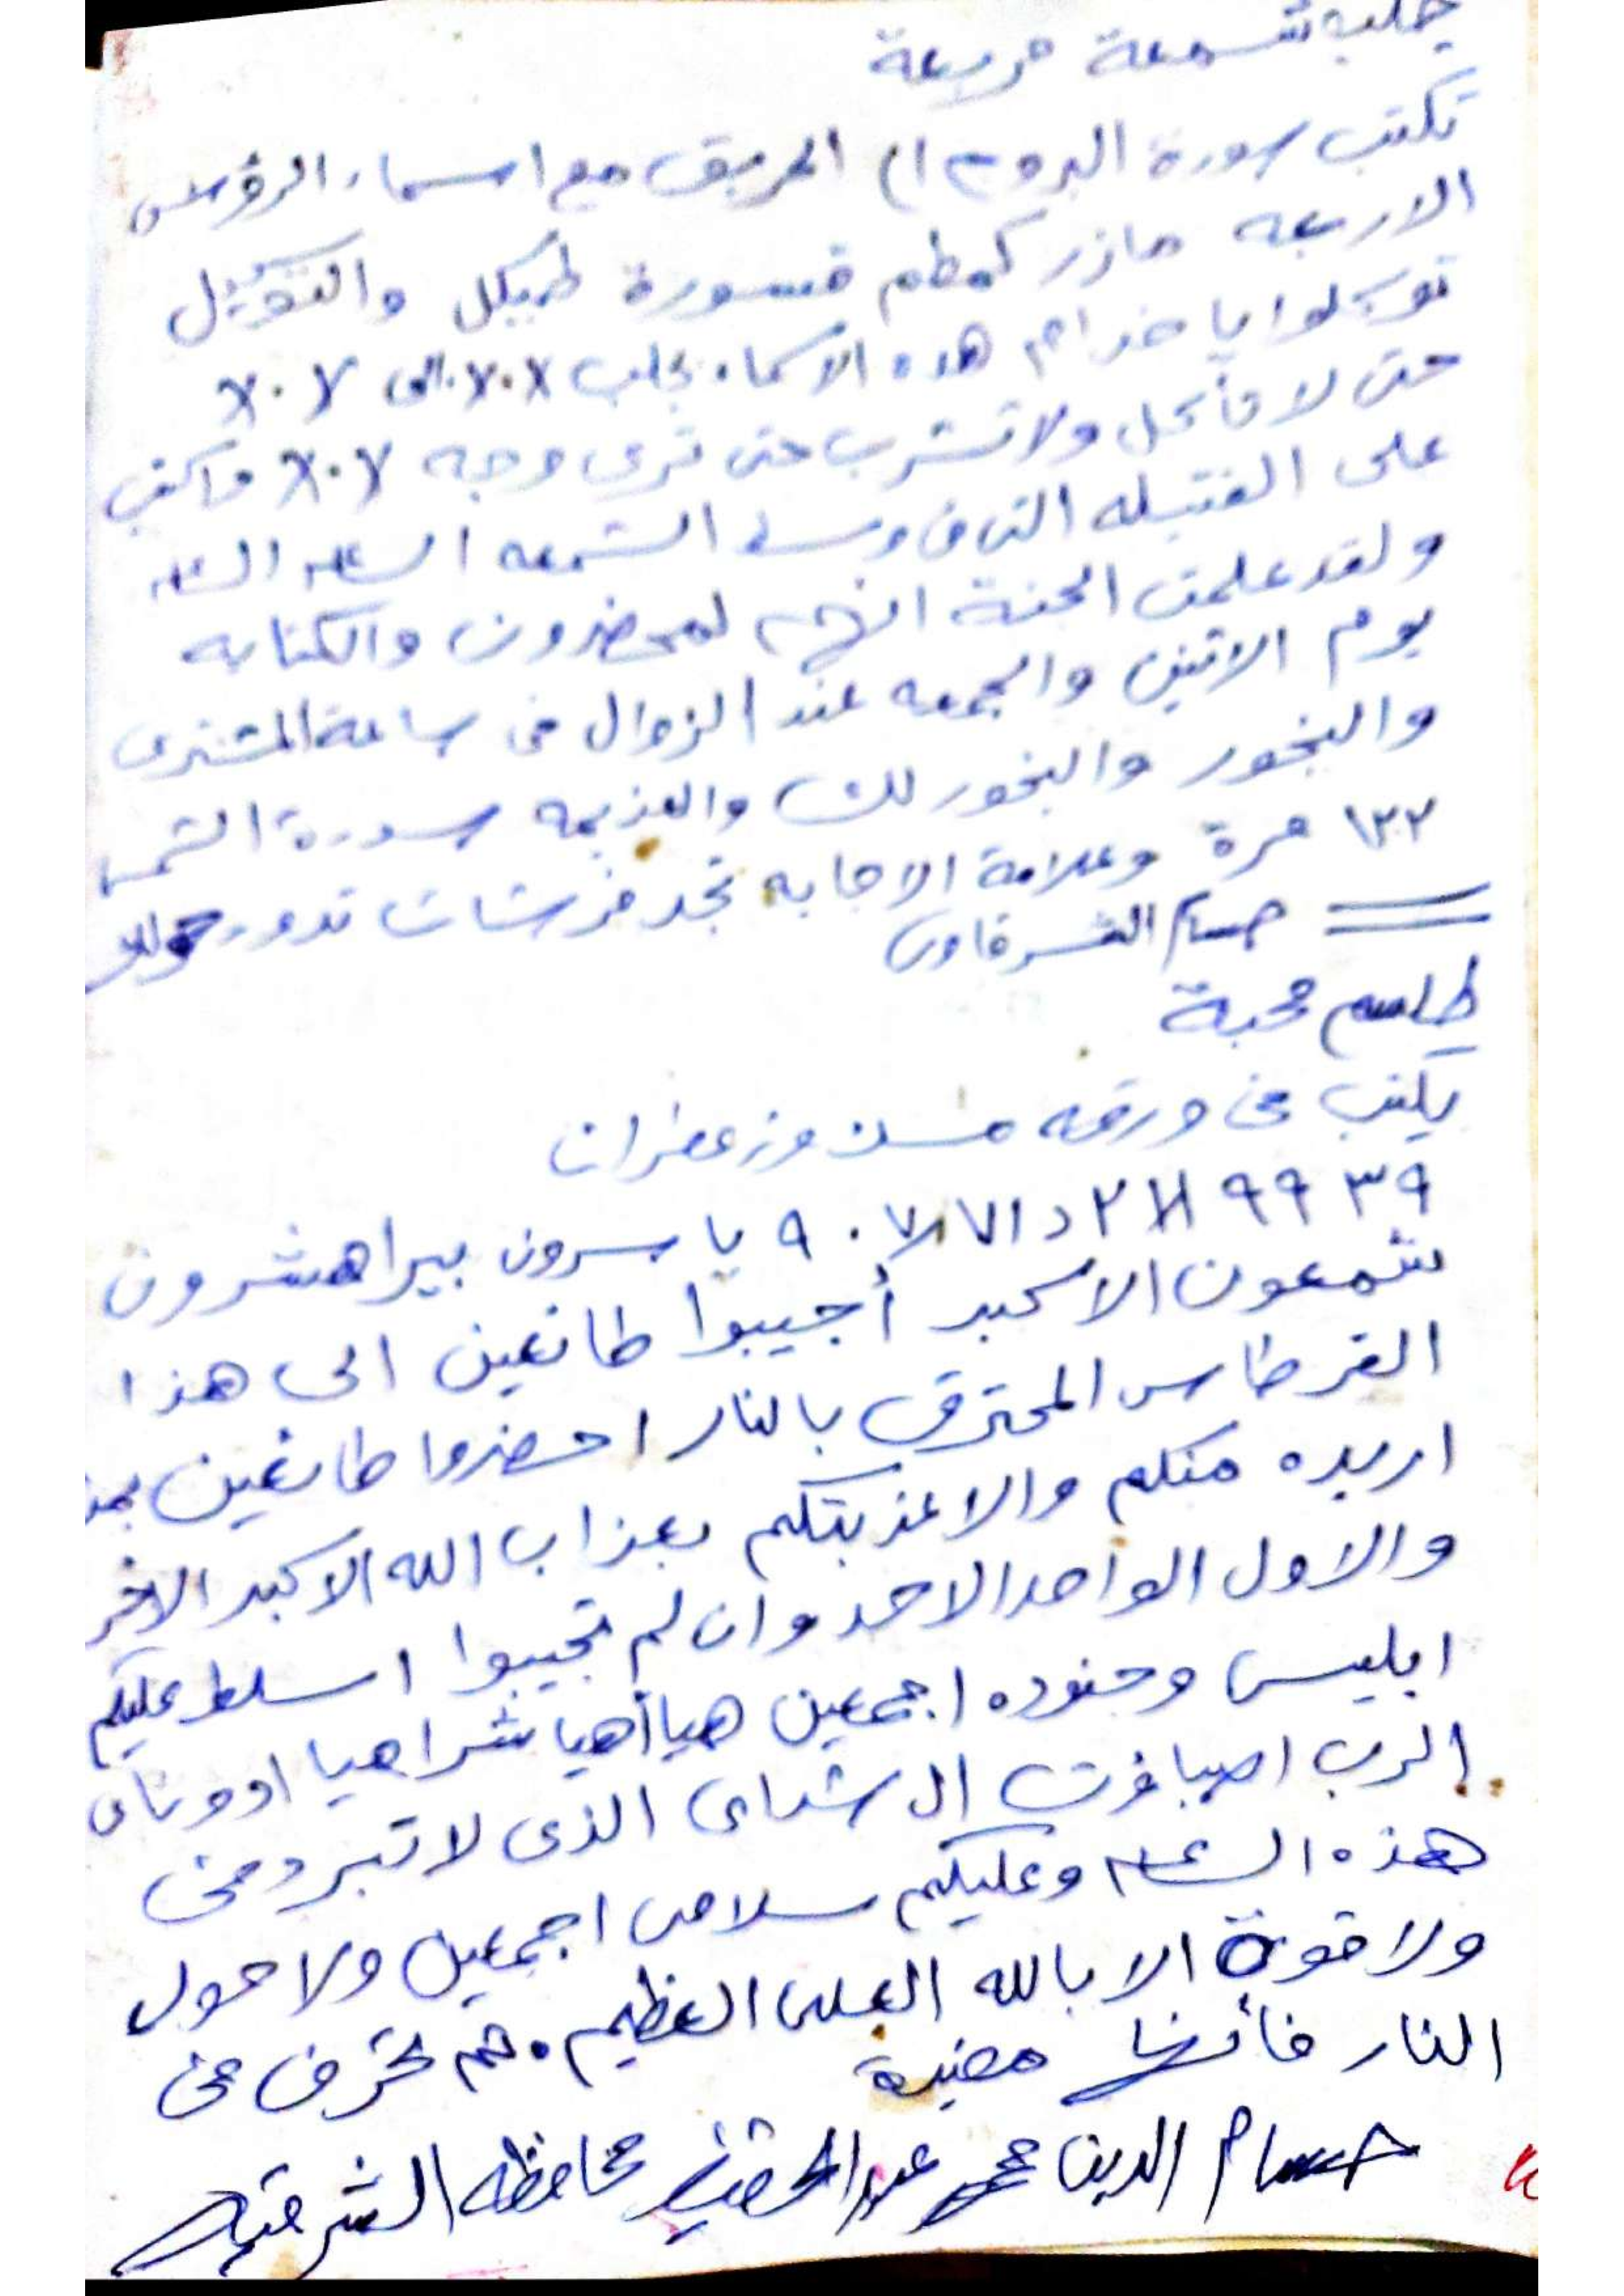 جلب شمعة مربعة
تكتب سورة البروج الى الحريق مع اسماء الرؤس
الاربعه مازر كمطم قسورة طيكل والتوكيل
توكلوا يا خدام هذه الاسماء بجلب ٧٠٨ الى ٧٠٨
حتى لا تأكل ولا تشرب حتى ترى وجه ٧٠٨ واكتب
على الفتيله التى فى وسط الشمعه الساعه الساعه
ولقد علمت الجنة انهم لمحضرون والكتابه
يوم الاثنين والجمعه عند الزوال فى ساعة المشترى
والبخور والبخور لك والعزيمه سورة الشمس
١٢٢ مرة وعلامة الاجابه تجد فرشات تدور حولك
حسام الشرقاوى
طلسم محبة
يكتب فى ورقه مسك وزعفران
٣٩ ٩٩ ١٨ ٢ د ٧١ ٧٨ ٩٠ يا سرون بيراهشرون
شمعون الاكبر أجيبوا طائعين الى هذا
القرطاس المحترق بالنار احضروا طائعين بما
اريده منكم والا عذبتكم بعذاب الله الاكبر الاخر
والاول الواحد الاحد وان لم تجيبوا اسلط عليكم
ابليس وجنوده اجمعين هيا أهيا شراهيا ادوناى
الرب اصباؤت ال شداى الذى لا تبرد فى
هذه الساعه وعليكم سلامى اجمعين ولا حول
ولا قوة الا بالله العلى العظيم. ثم تحرق فى
النار فأنها مضيرة
حسام الدين محمد محافظه الشرقيه